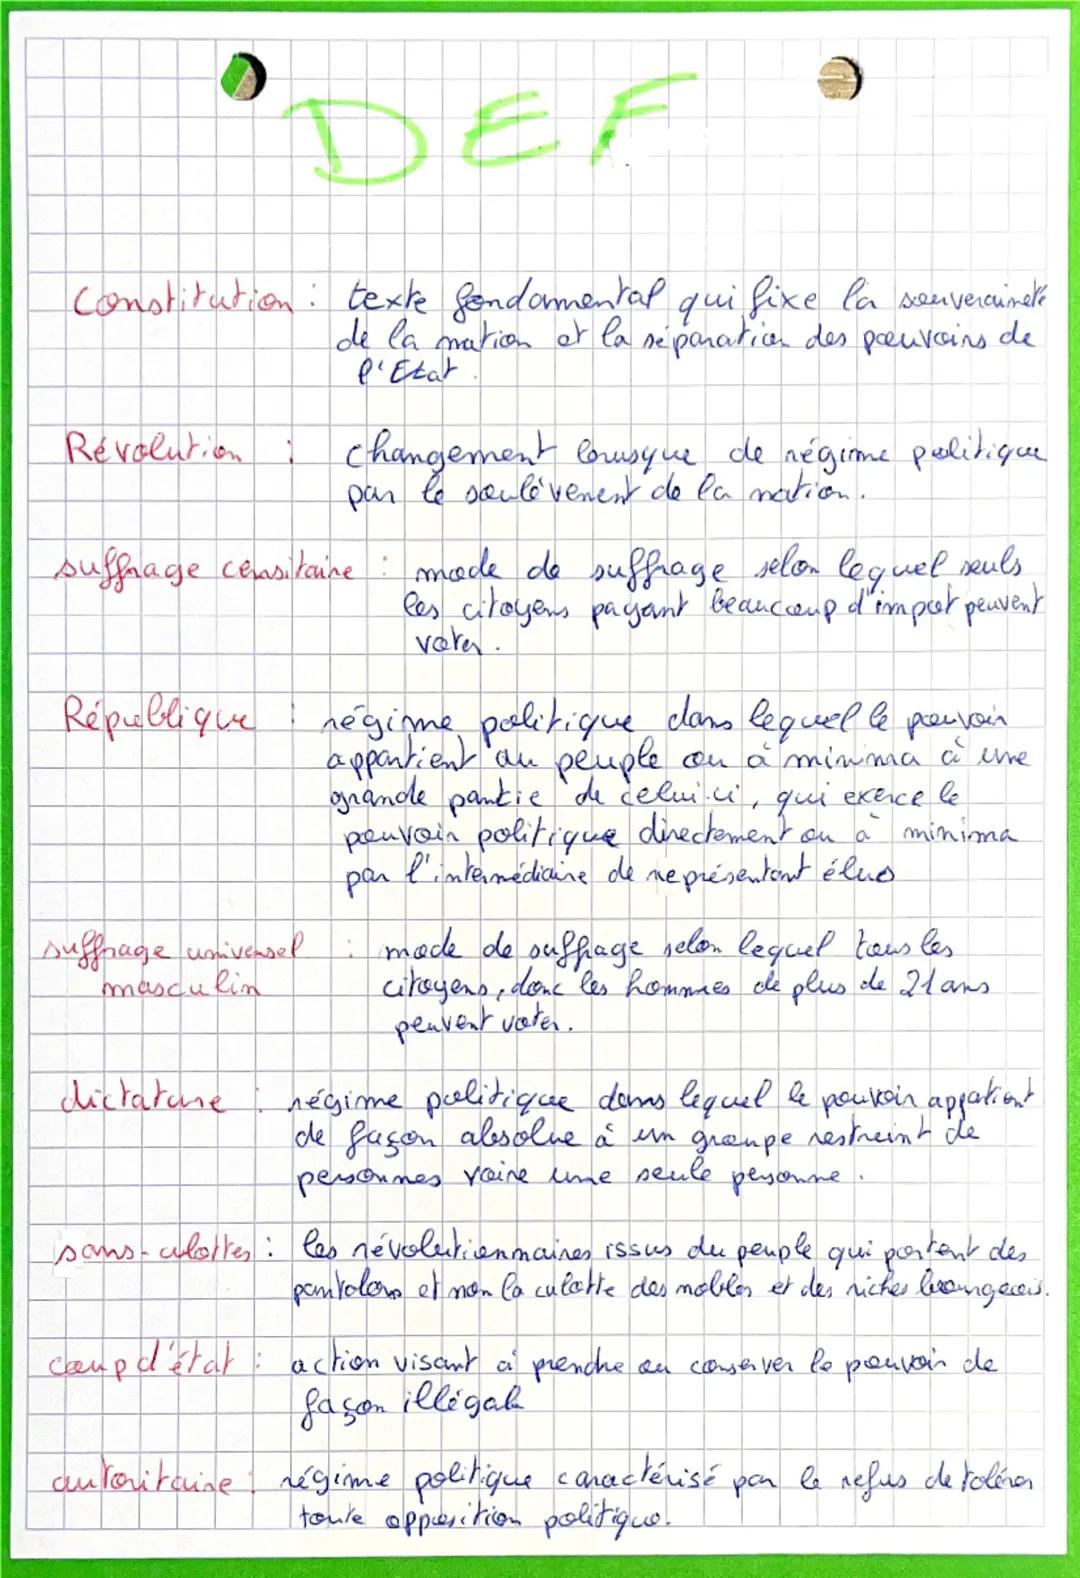 DEF
Constitution : texte fondamental qui fixe la souveraineté
de la nation et la séparation des pouvoirs de
l'Etat.
Révolution : changement brusque de régime politique
par le soulèvement de la nation.
suffrage censitaire : mode de suffrage selon lequel seuls
les citoyens payant beaucoup d'impot peuvent
voter.
République : régime politique dans lequel le pouvoir
appartient au peuple ou à minima à une
grande partie de celui-ci, qui exerce le
pouvoir politique directement ou à minima
par l'intermédiaire de représentant élus
suffrage universel : mode de suffrage selon lequel tous les
masculin citoyens, donc les hommes de plus de 21 ans
peuvent voter.
dictature : régime politique dans lequel le pouvoir appatient
de façon absolue à un groupe restreint de
personnes voire une seule personne.
sans-culottes : les révolutionnaires issus du peuple qui portent des
pantalons et non la culotte des nobles et des riches bourgeois.
coup d'état : action visant à prendre ou conserver le pouvoir de
façon illégale
autoritaire : régime politique caractérisé par le refus de tolérer
toute opposition politique.